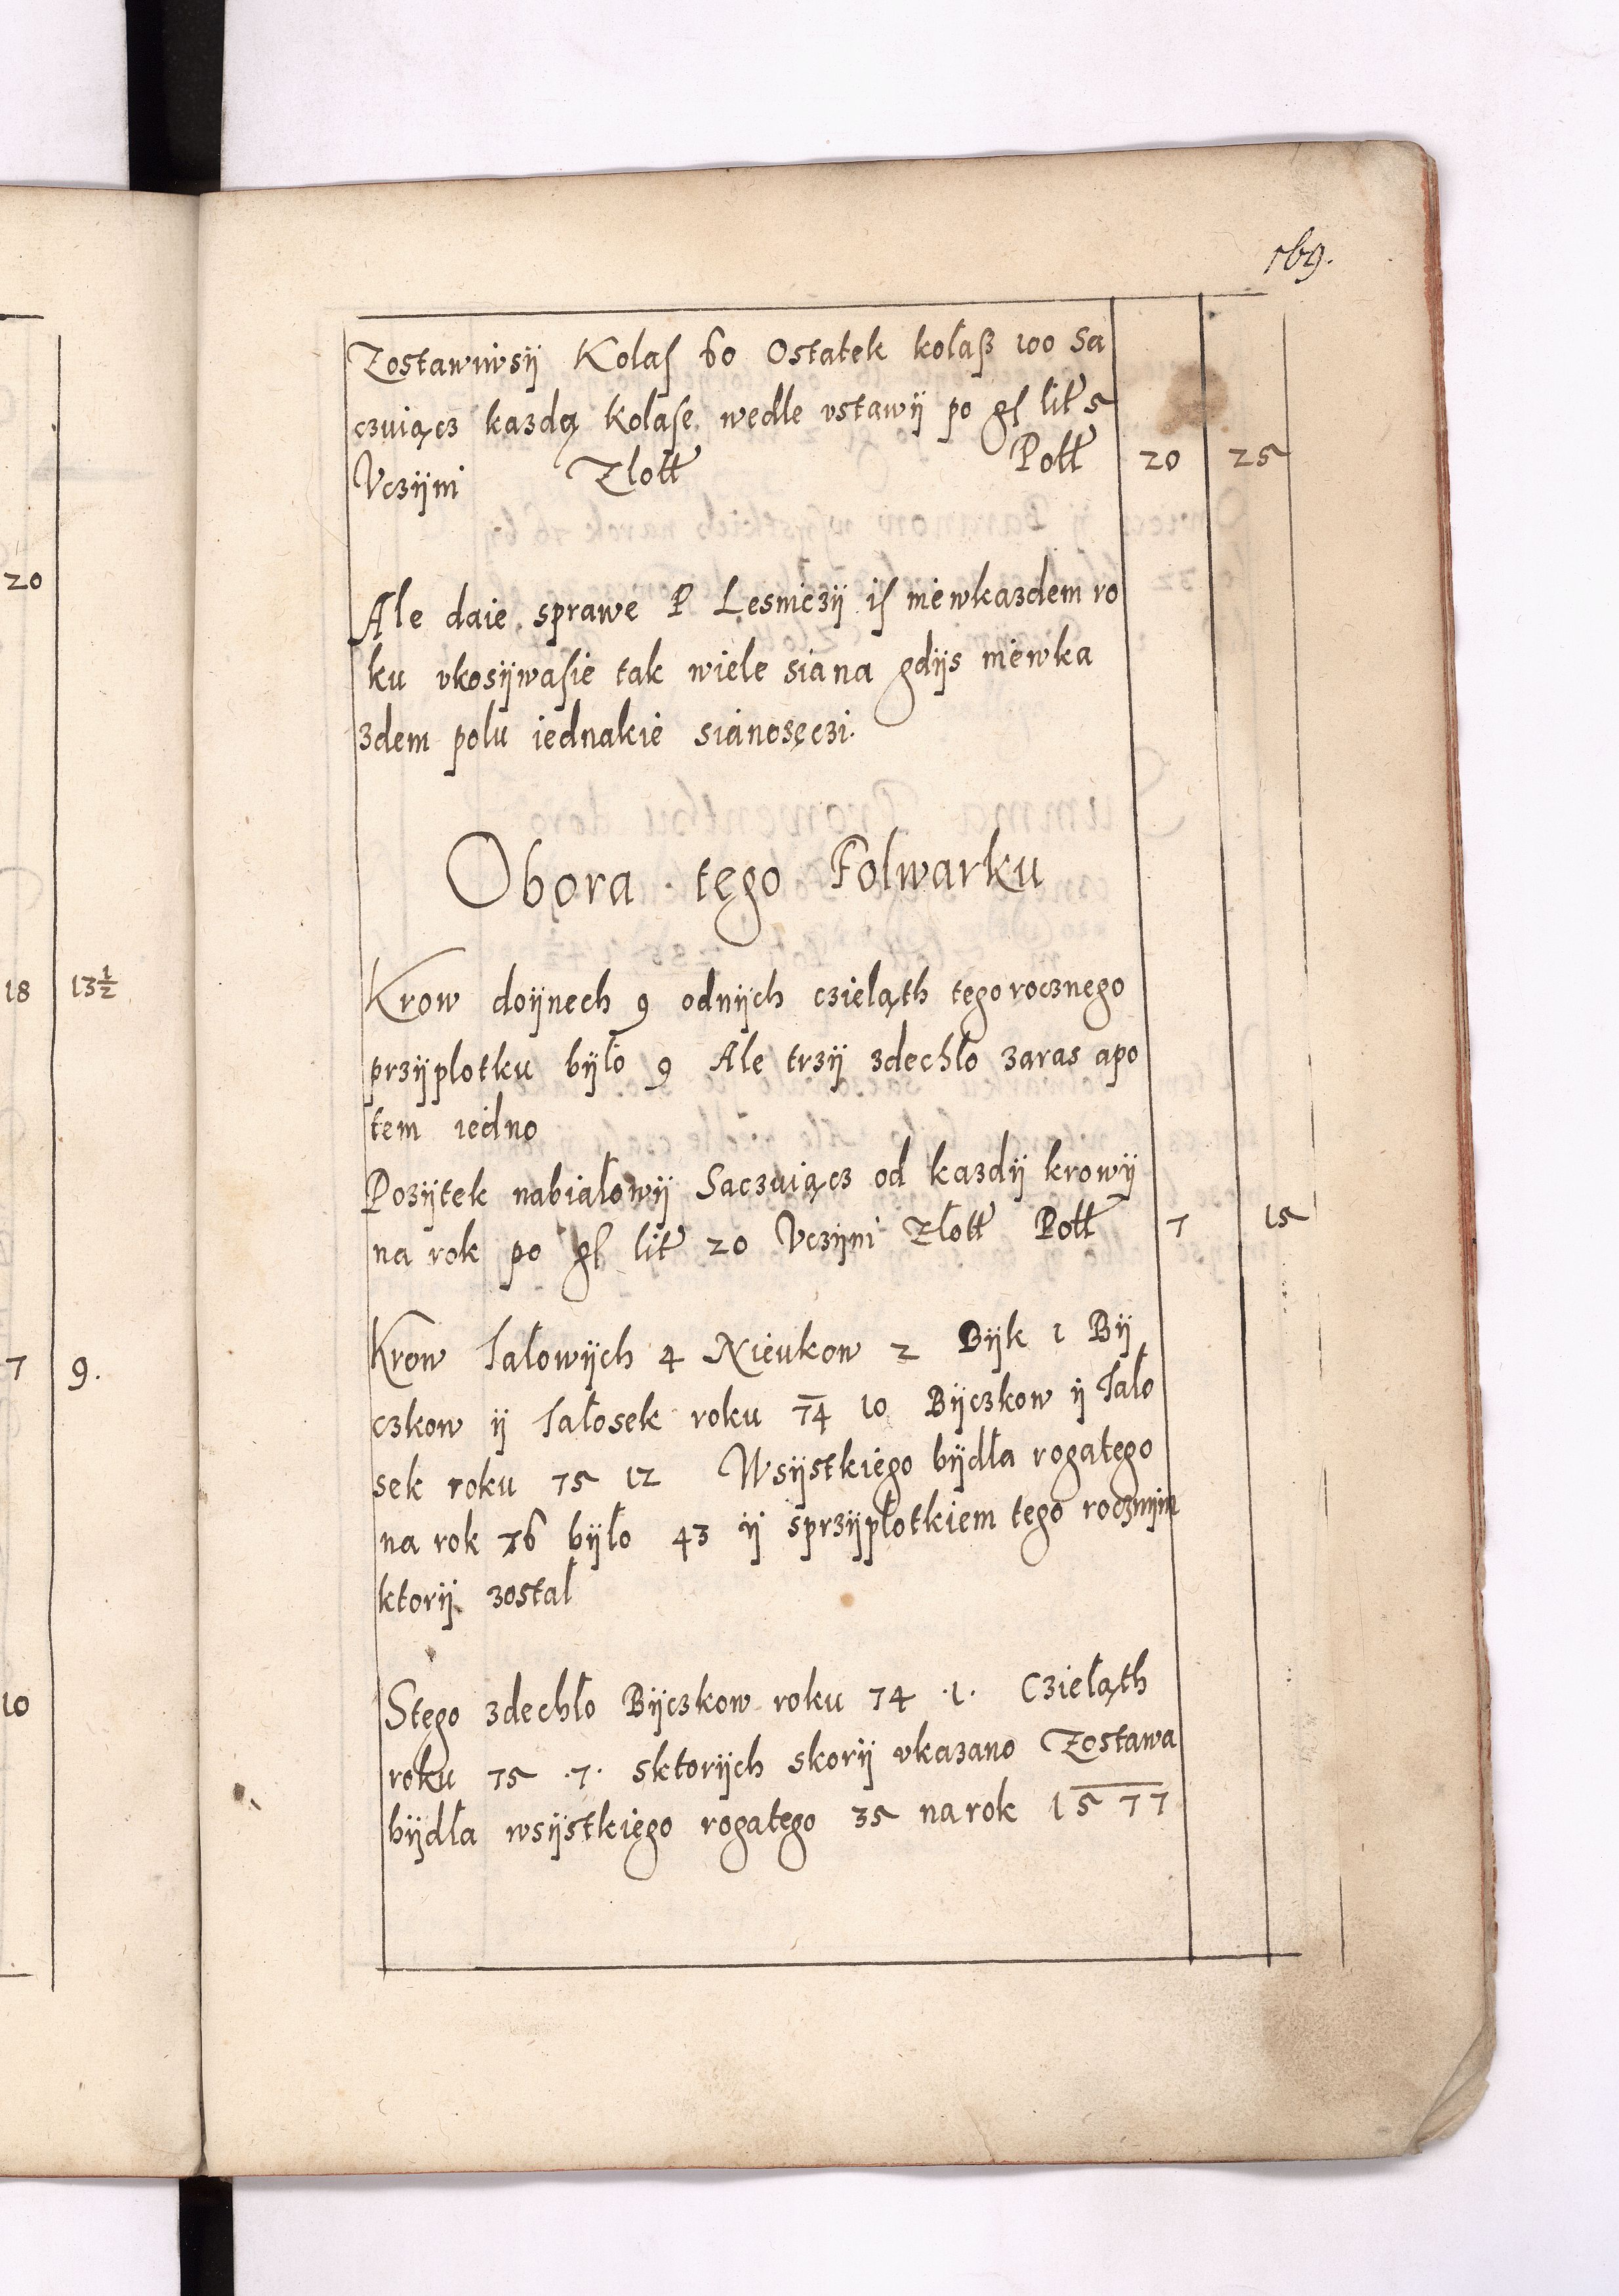 169.
Zostawiwsÿ Kolaſ 60 Ostatek kolaß 100 Sa
czuiącz kazdą Kolaſe wedle vstawÿ po gſ lit 5
Vczÿni Zlott Pott 20 25
Ale daie sprawe P Lesniczÿ iſ niewkazdem ro
ku vkosÿwaſie tak wiele siana gdÿs niewka
zdem polu iednakie sianosęczi.
Obora tego Folwarku
Krow doÿnech 9 odnÿch czieląth tegorocznego
przÿplotku bÿlo 9 Ale trzÿ zdechlo zaras apo
tem iedno
Pozÿtek nabiałowÿ Saczuiącz od kazdÿ krowÿ
na rok po gſ lit 20 Vczÿni Zlott Pott 7 15
Krow Ialowÿch 4 Nieukow 2 Bÿk 1 Bÿ
czkow ÿ Iałosek roku 74 10 Bÿczkow ÿ Iało
sek roku 75 12 Wsÿstkiego bÿdła rogatego
na rok 76 bÿło 43 ÿ sprzÿplotkiem tego rocznÿm
ktorÿ zostal
Stego zdechło Bÿczkow roku 74 .1. Czieląth
roku 75 .7. sktorÿch skorÿ vkazano Zostawa
bÿdła wsÿstkiego rogatego 35 na rok 1577
20
18 13½
7 9.
10